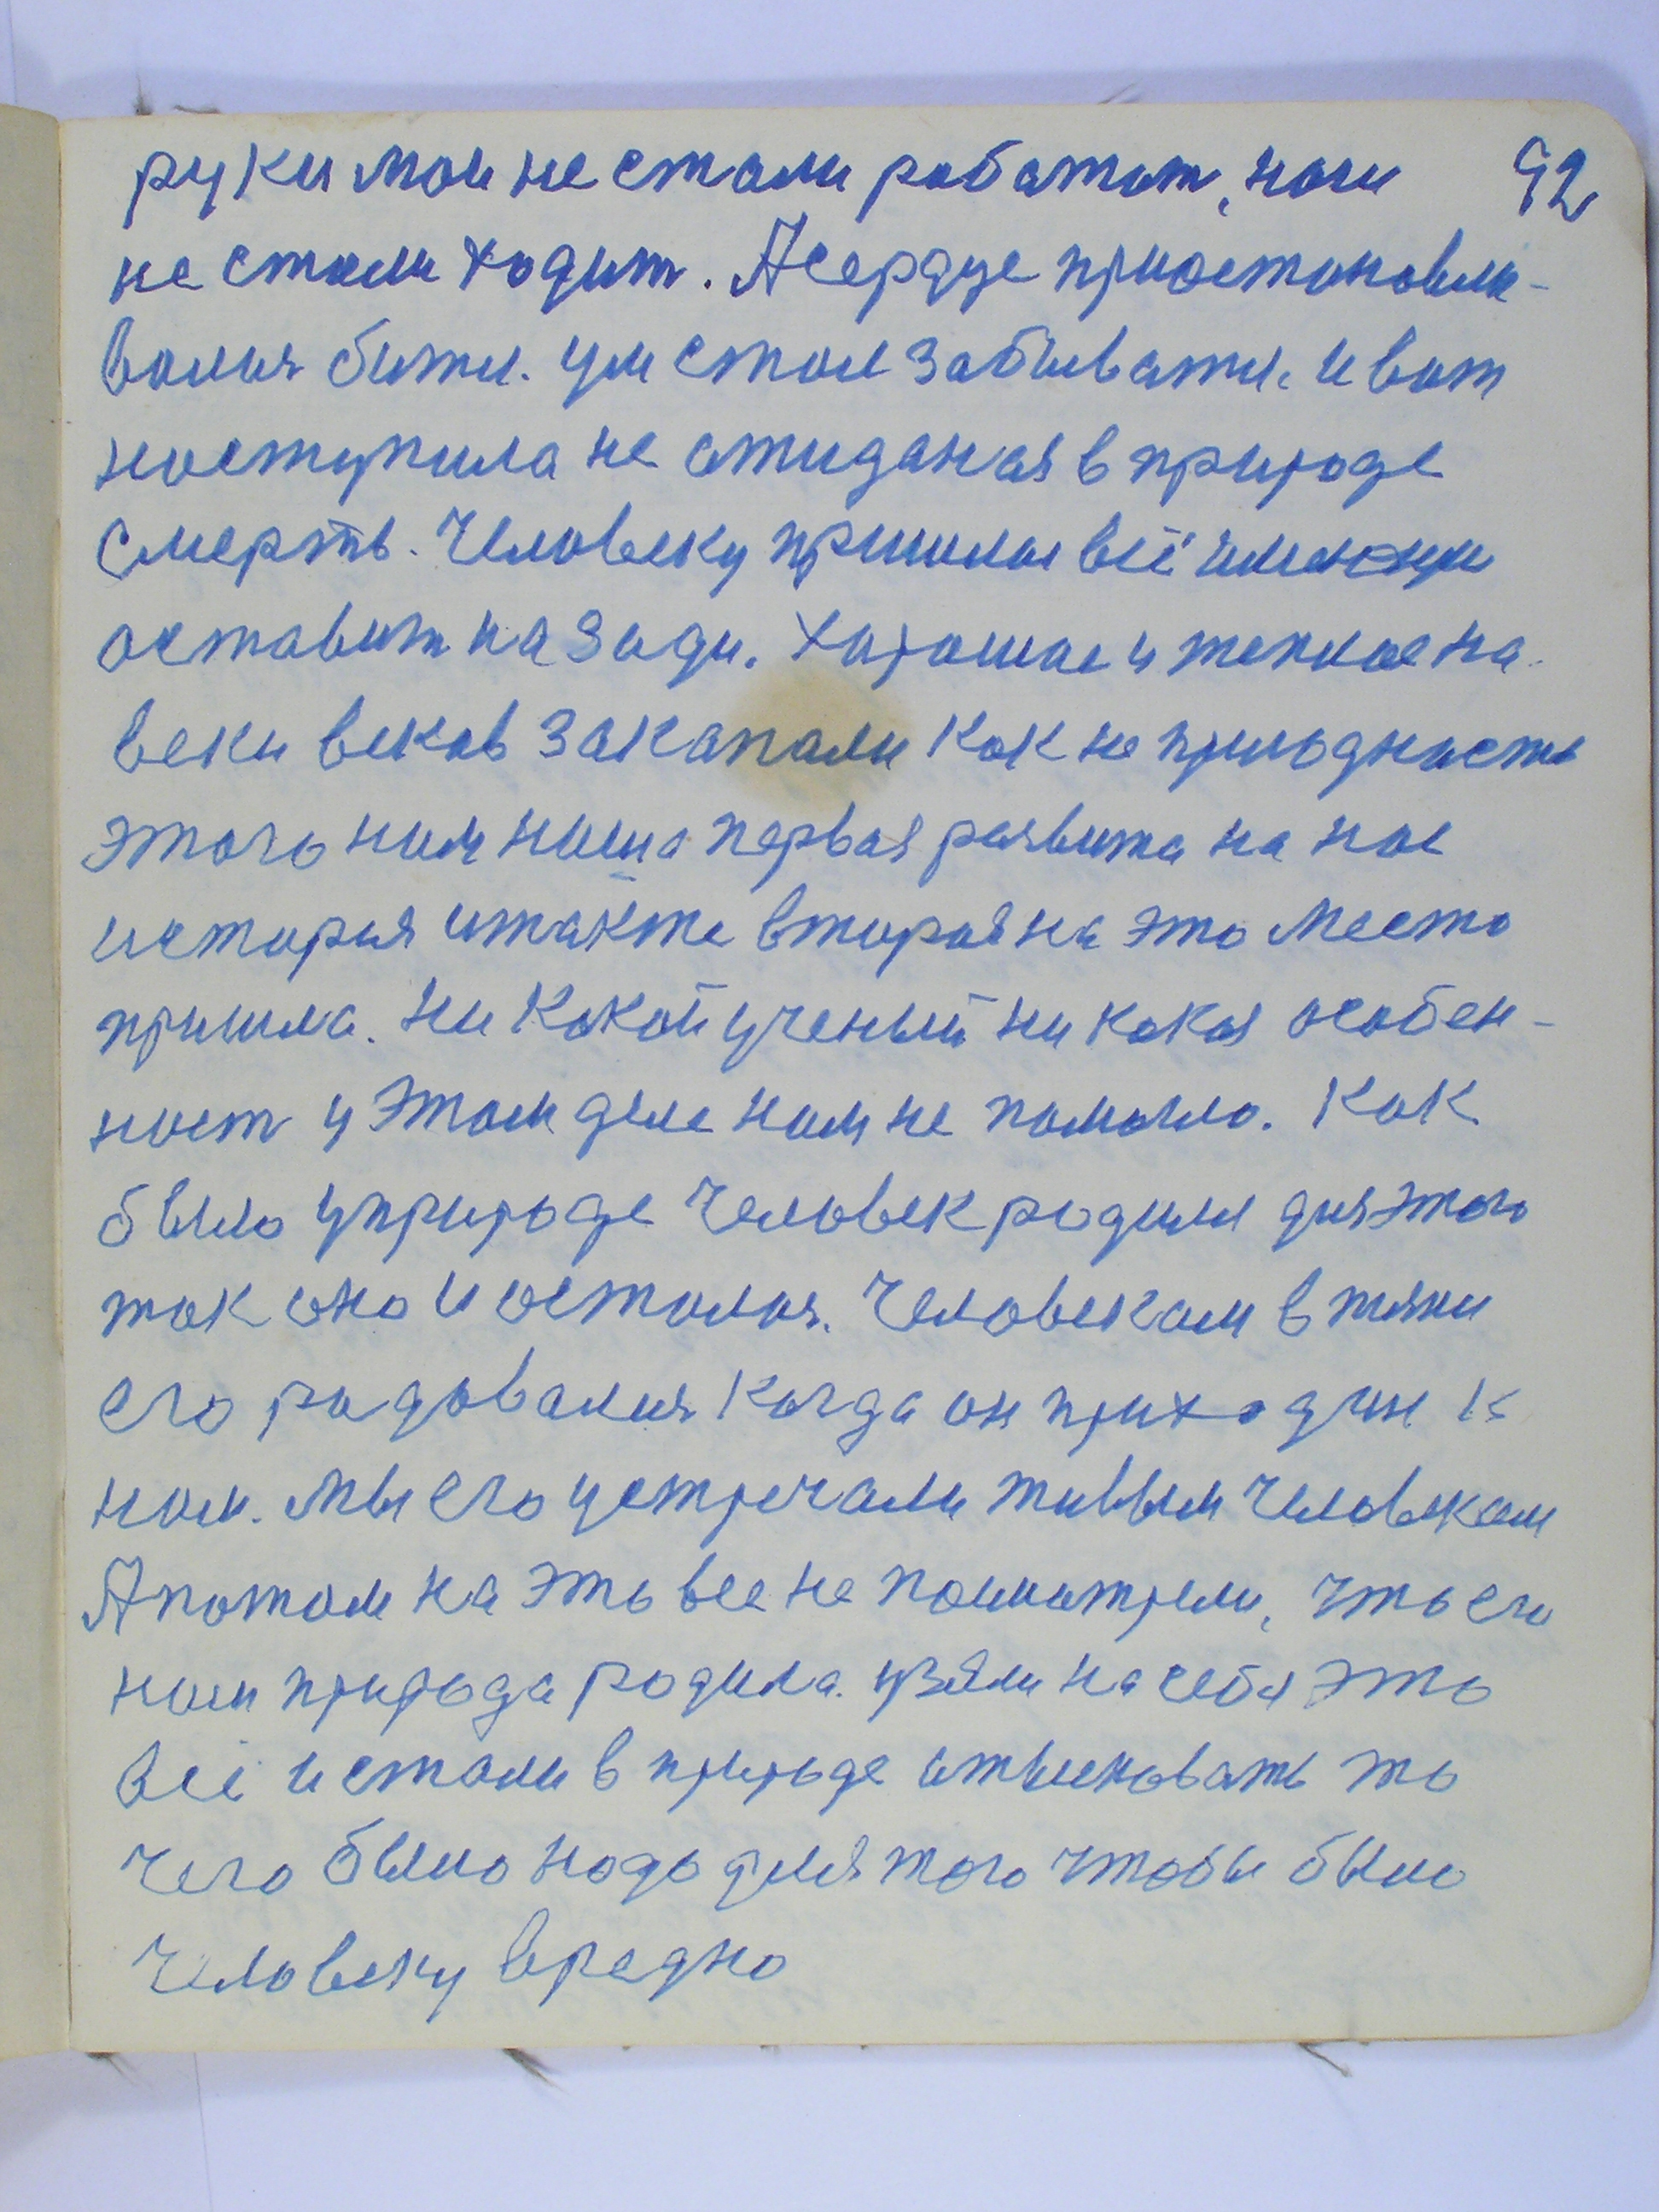 руки мои не стали работат, ноги 92
не стали ходит. А сердце приостановли-
волися биты. ум стал забивати. и вот
наступила не ажиданая в природе
смерть. Человеку пришлося всё
аставит на зади. Харошае и теплае на
веки веков закапали как не пригодность
этого нам наша первая развита на нас
история и также вторая на это место
пришла. Ни какой ученый ни какая особен-
ност у этом деле нам не помогло. Как
было у природе человек родился для этого
так оно и осталося. Человекам в жизни
его радовалися когда он приходил к
нам. Мы его устричали живым человекам
А потом на эть все не посмотрели, что его
нам природа родила. узяли на себя это
всё и стали в природе то
чего было надо для того чтобы было
человеку вредно